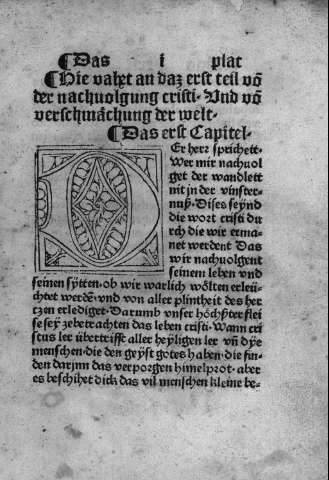 ¶Das i plat
¶Hie vahet an daz erst teil võ
der nachuolgung cristi· Vnd võ
verschmächung der welt·
¶Das erst Capitel·
DEr herr sprichett·
Wer mir nachuol
get der wandlett
nit in der vinster-
nuß· Dises seynd
die wort cristi du
rch die wir erma-
net werdent Das
wir nachuolgent
seinem leben vnd
seinen sytten· ob wir warlich wölten erleü-
chtet werdē· vnd von aller plintheit des her
tzen erlediget· Darumb vnser höchster flei
sse sey ze betrachten das leben cristi· Wann cri
stus ler übertrifft aller heyligen ler vñ dye
menschen· die den geyst gotes haben· die fin-
den darjnn das verporgen himelprot· aber
es beschihet dick das vil menschen kleine be-